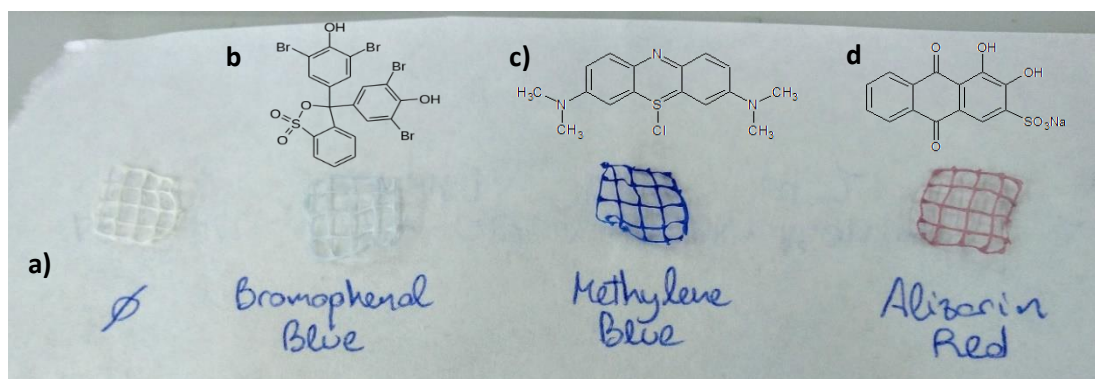 b
c)
d
OH
Br
Br
Br
OH
Br
O
S
O
O
N
H₃C
N
CH₃
S
Cl
CH₃
N
CH₃
O
OH
OH
SO₃Na
O
a)
∅
Bromophenal
Blue
Methylene
Blue
Alizarin
Red